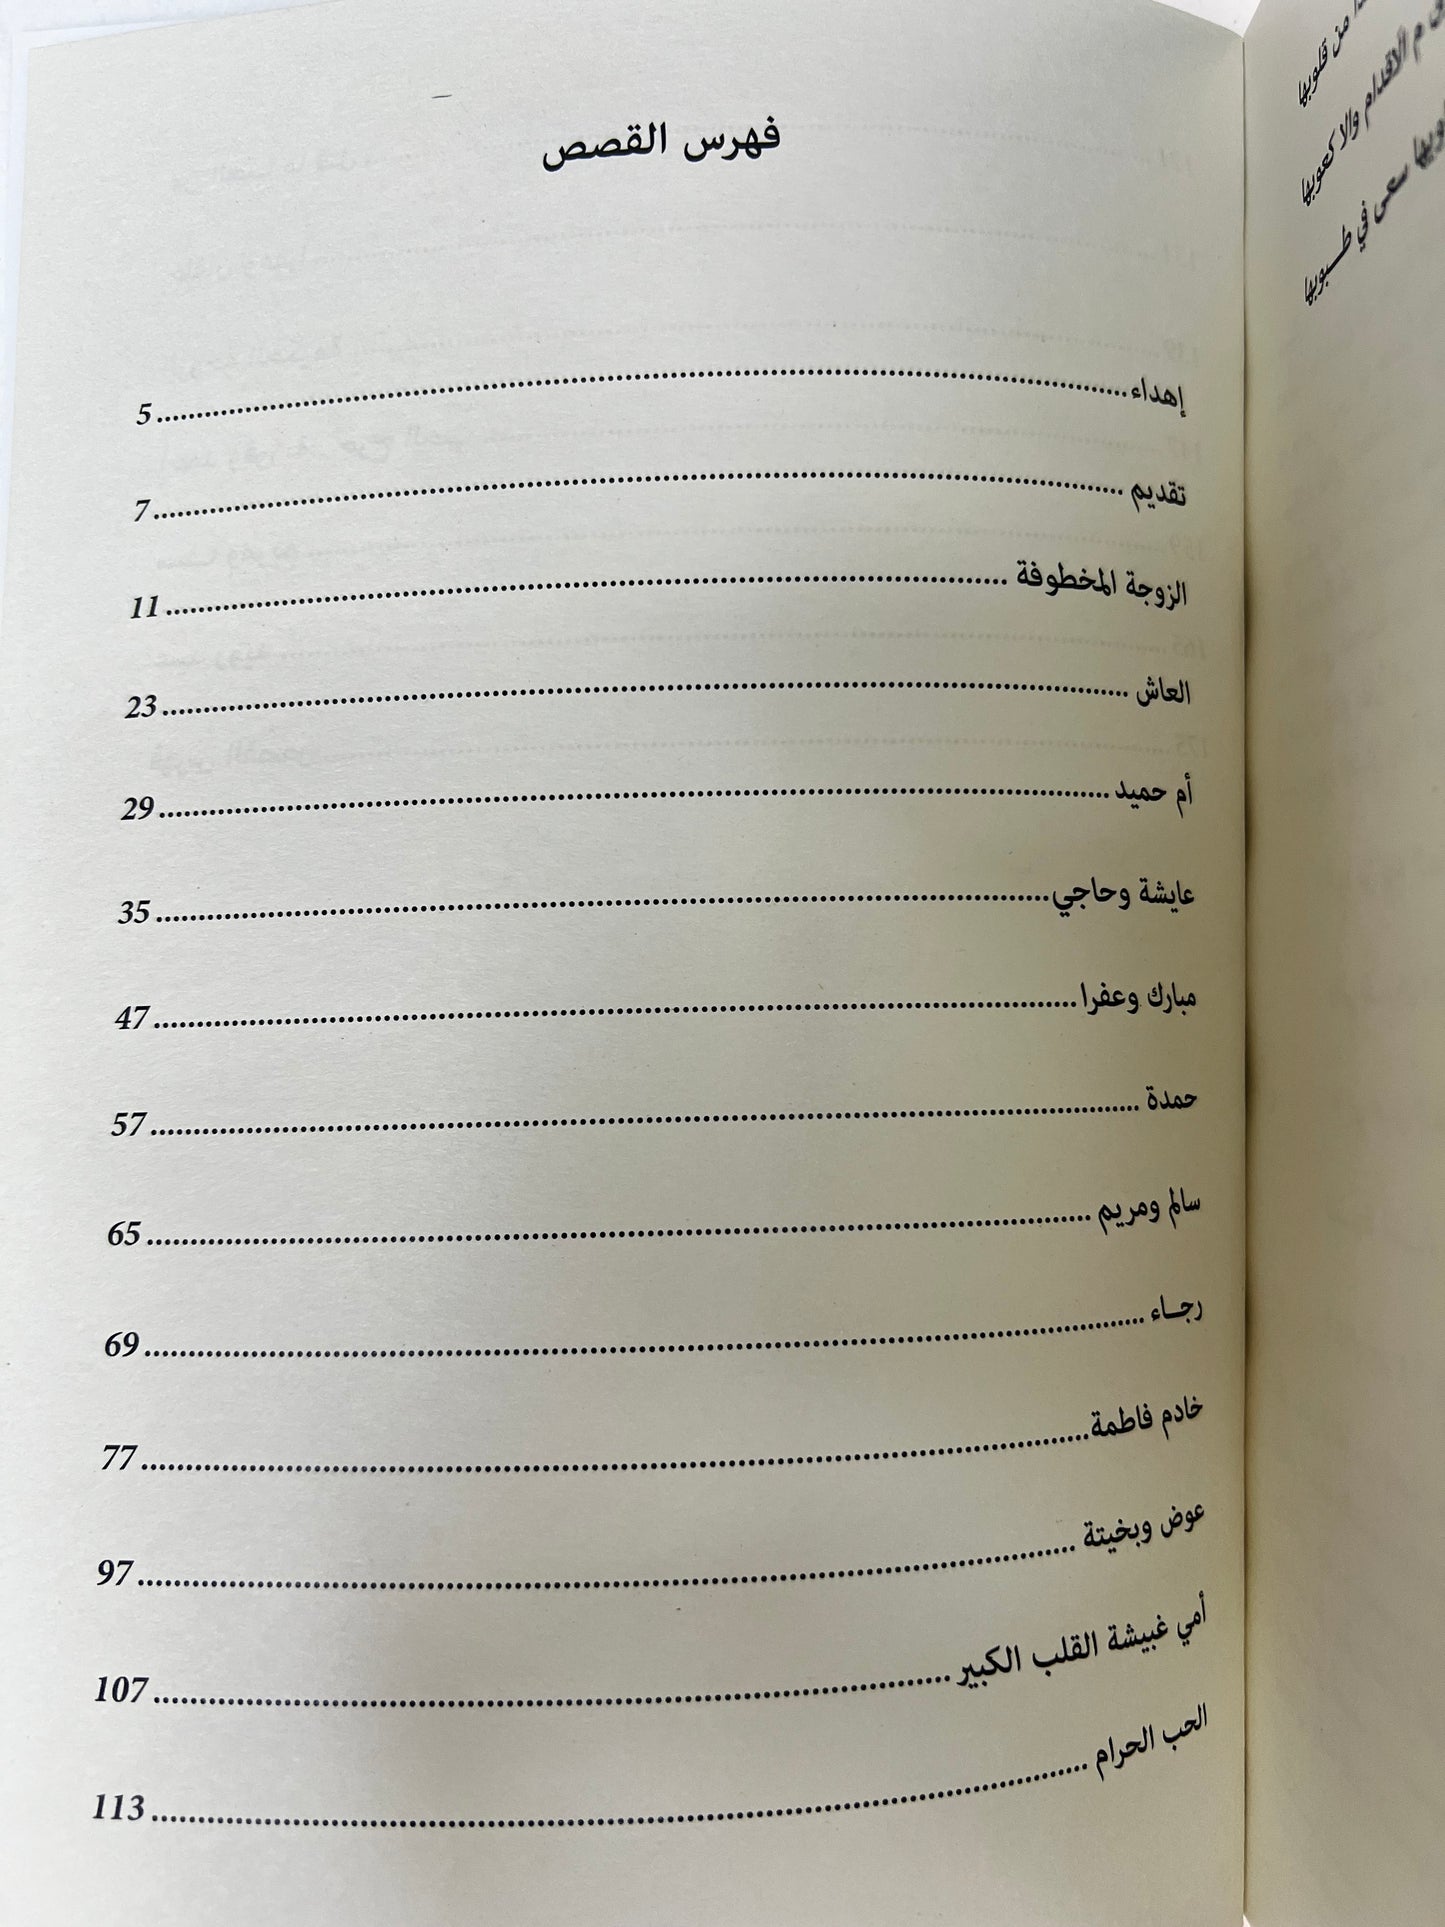 فهرس القصص
إهداء........................5
تقديم........................7
الزوجة المخطوفة........................11
العاش........................23
أم حميد........................29
عايشة وحاجي........................35
مبارك وعفرا........................47
حمدة........................57
سالم ومريم........................65
رجـاء........................69
خادم فاطمة........................77
عوض وبخيتة........................97
أمي غبيشة القلب الكبير........................107
الحب الحرام........................113
من قلوبها
م الاقدام والا كعوبها
سعى في طـبوبها